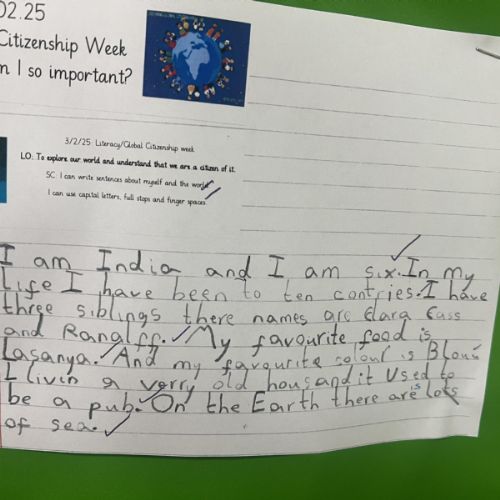 02.25
Citizenship Week
m I so important?
3/2/25 Literacy/Global Citizenship week
LO: To explore our world and understand that we are a citizen of it.
SC: I can write sentences about myself and the world
I can use capital letters, full stops and finger spaces.
I am India and I am six. In my
Life I have been to ten contries. I have
three siblings there names are Clara Cass
and Ranalff. My favourite food is
Lasanya. And my favourite colour is Bloun
I livin a verry old hous and it Used to
be a pub. On the Earth there are is lots
of sea.